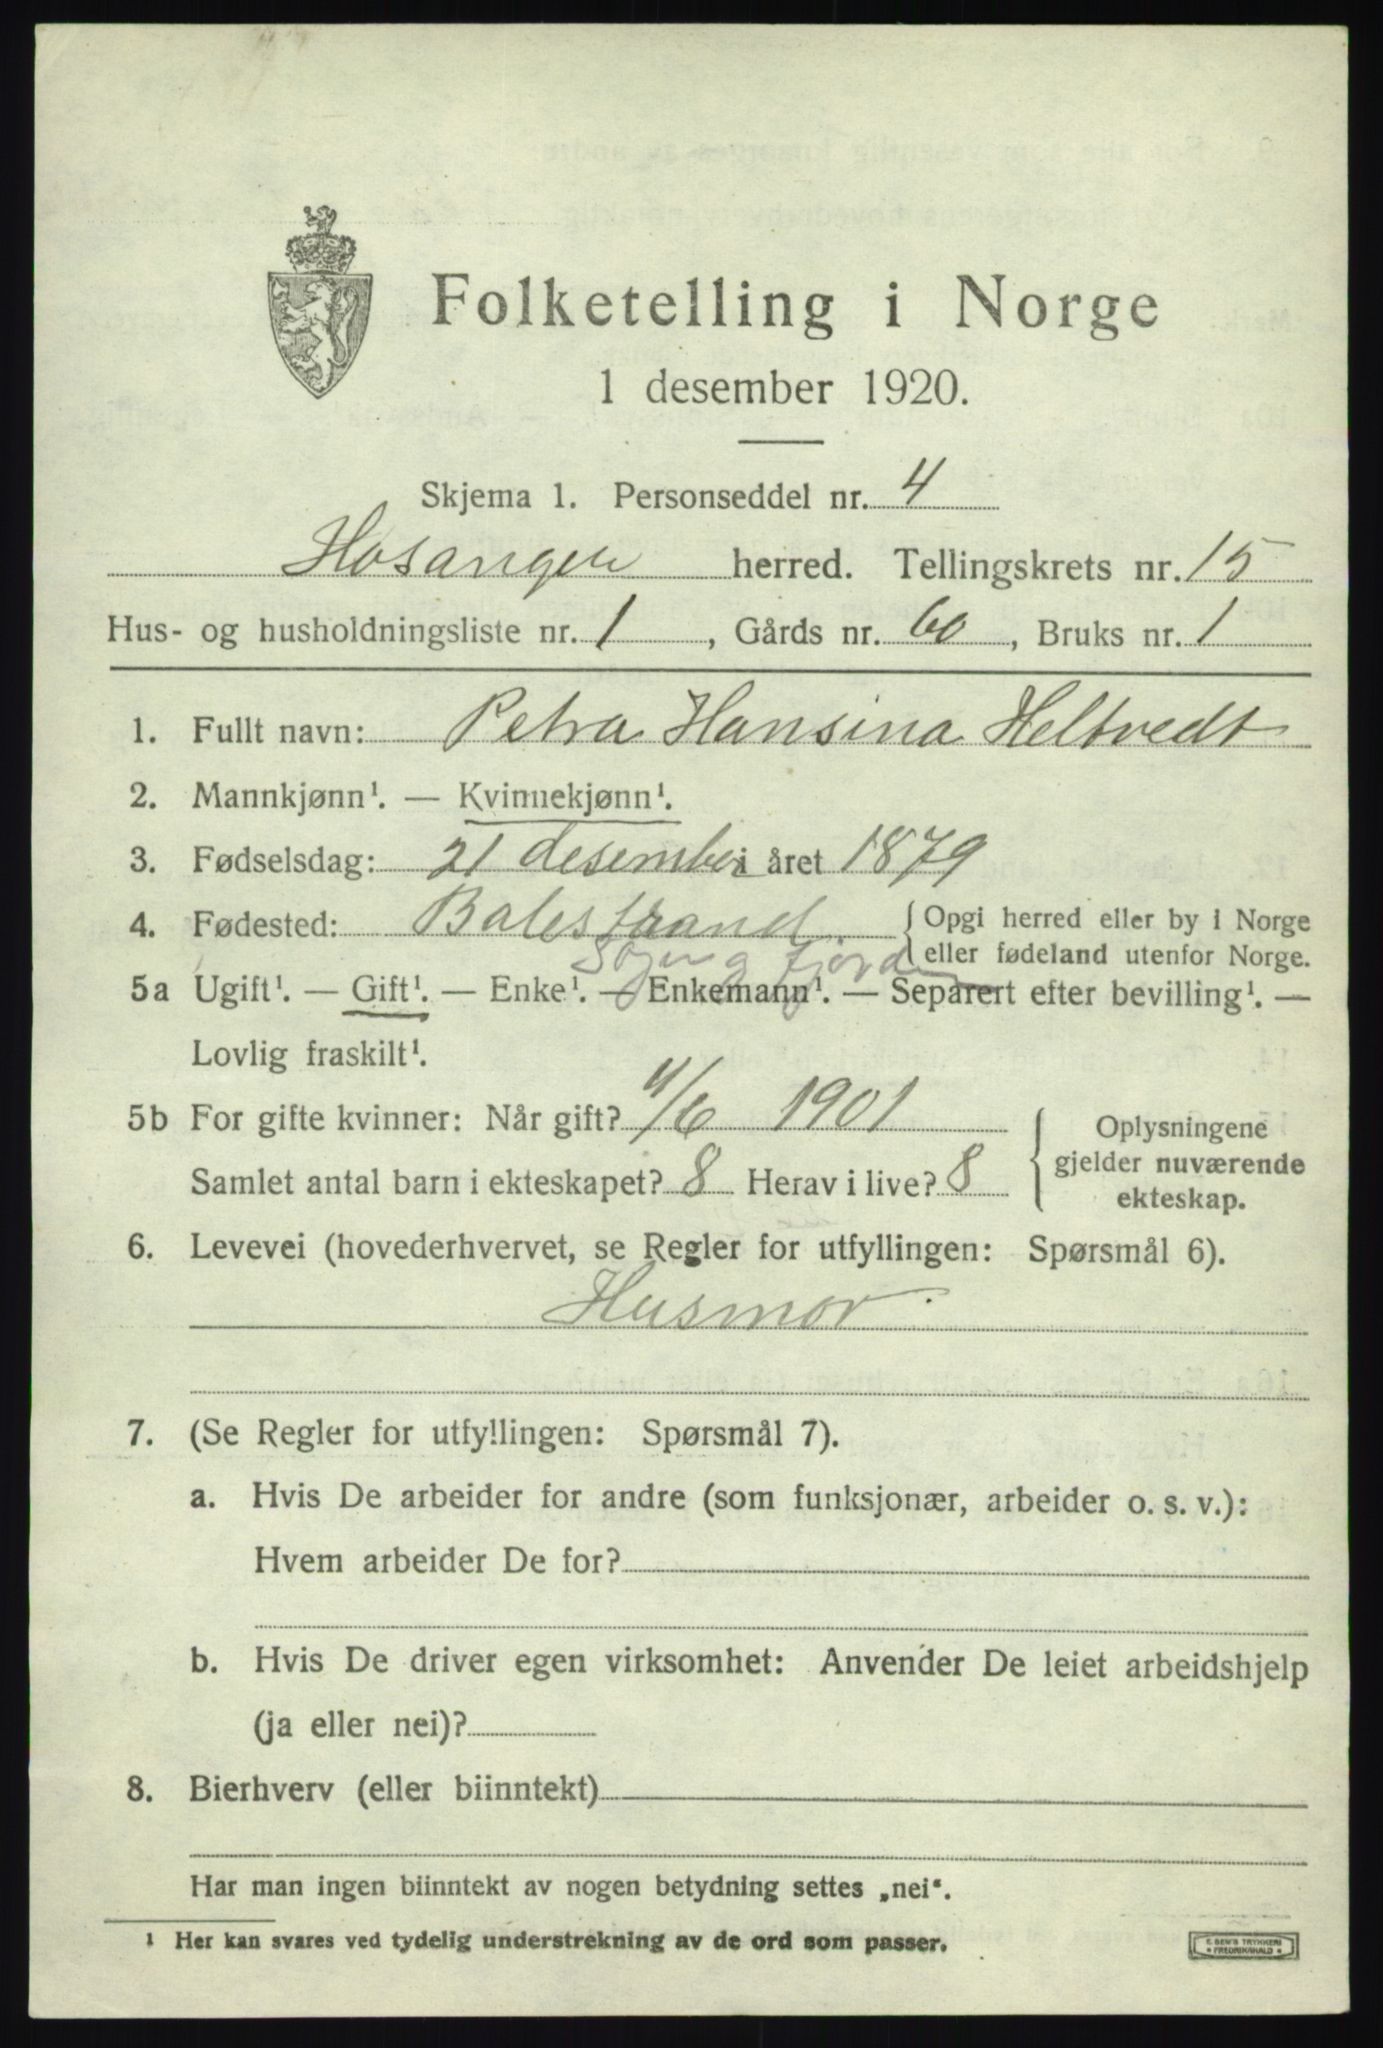 Folketelling i Norge
1 desember 1920.
Skjema 1. Personseddel nr. 4
Hosanger herred. Tellingskrets nr. 15
Hus- og husholdningsliste nr. 1, Gårds nr. 60, Bruks nr. 1
1. Fullt navn: Petra Hansina Heltvedt
2. Mannkjønn¹. — Kvinnekjønn¹.
3. Fødselsdag: 21 desember i året 1879
4. Fødested: Balestrand { Opgi herred eller by i Norge
eller fødeland utenfor Norge.
5a Ugift¹. — Gift¹. — Enke¹. — Enkemann¹. — Separert efter bevilling¹. —
Lovlig fraskilt¹.
5b For gifte kvinner: Når gift? 4/6 1901
Samlet antal barn i ekteskapet? 8 Herav i live? 8
{ Oplysningene
gjelder nuværende
ekteskap.
6. Levevei (hovederhvervet, se Regler for utfyllingen: Spørsmål 6).
Husmor.
7. (Se Regler for utfyllingen: Spørsmål 7).
a. Hvis De arbeider for andre (som funksjonær, arbeider o. s. v.):
Hvem arbeider De for?
b. Hvis De driver egen virksomhet: Anvender De leiet arbeidshjelp
(ja eller nei)?
8. Bierhverv (eller biinntekt)
Har man ingen biinntekt av nogen betydning settes „nei“.
1 Her kan svares ved tydelig understrekning av de ord som passer.
E. SEM'S TRYKKERI
* FREDRIKSHALD *